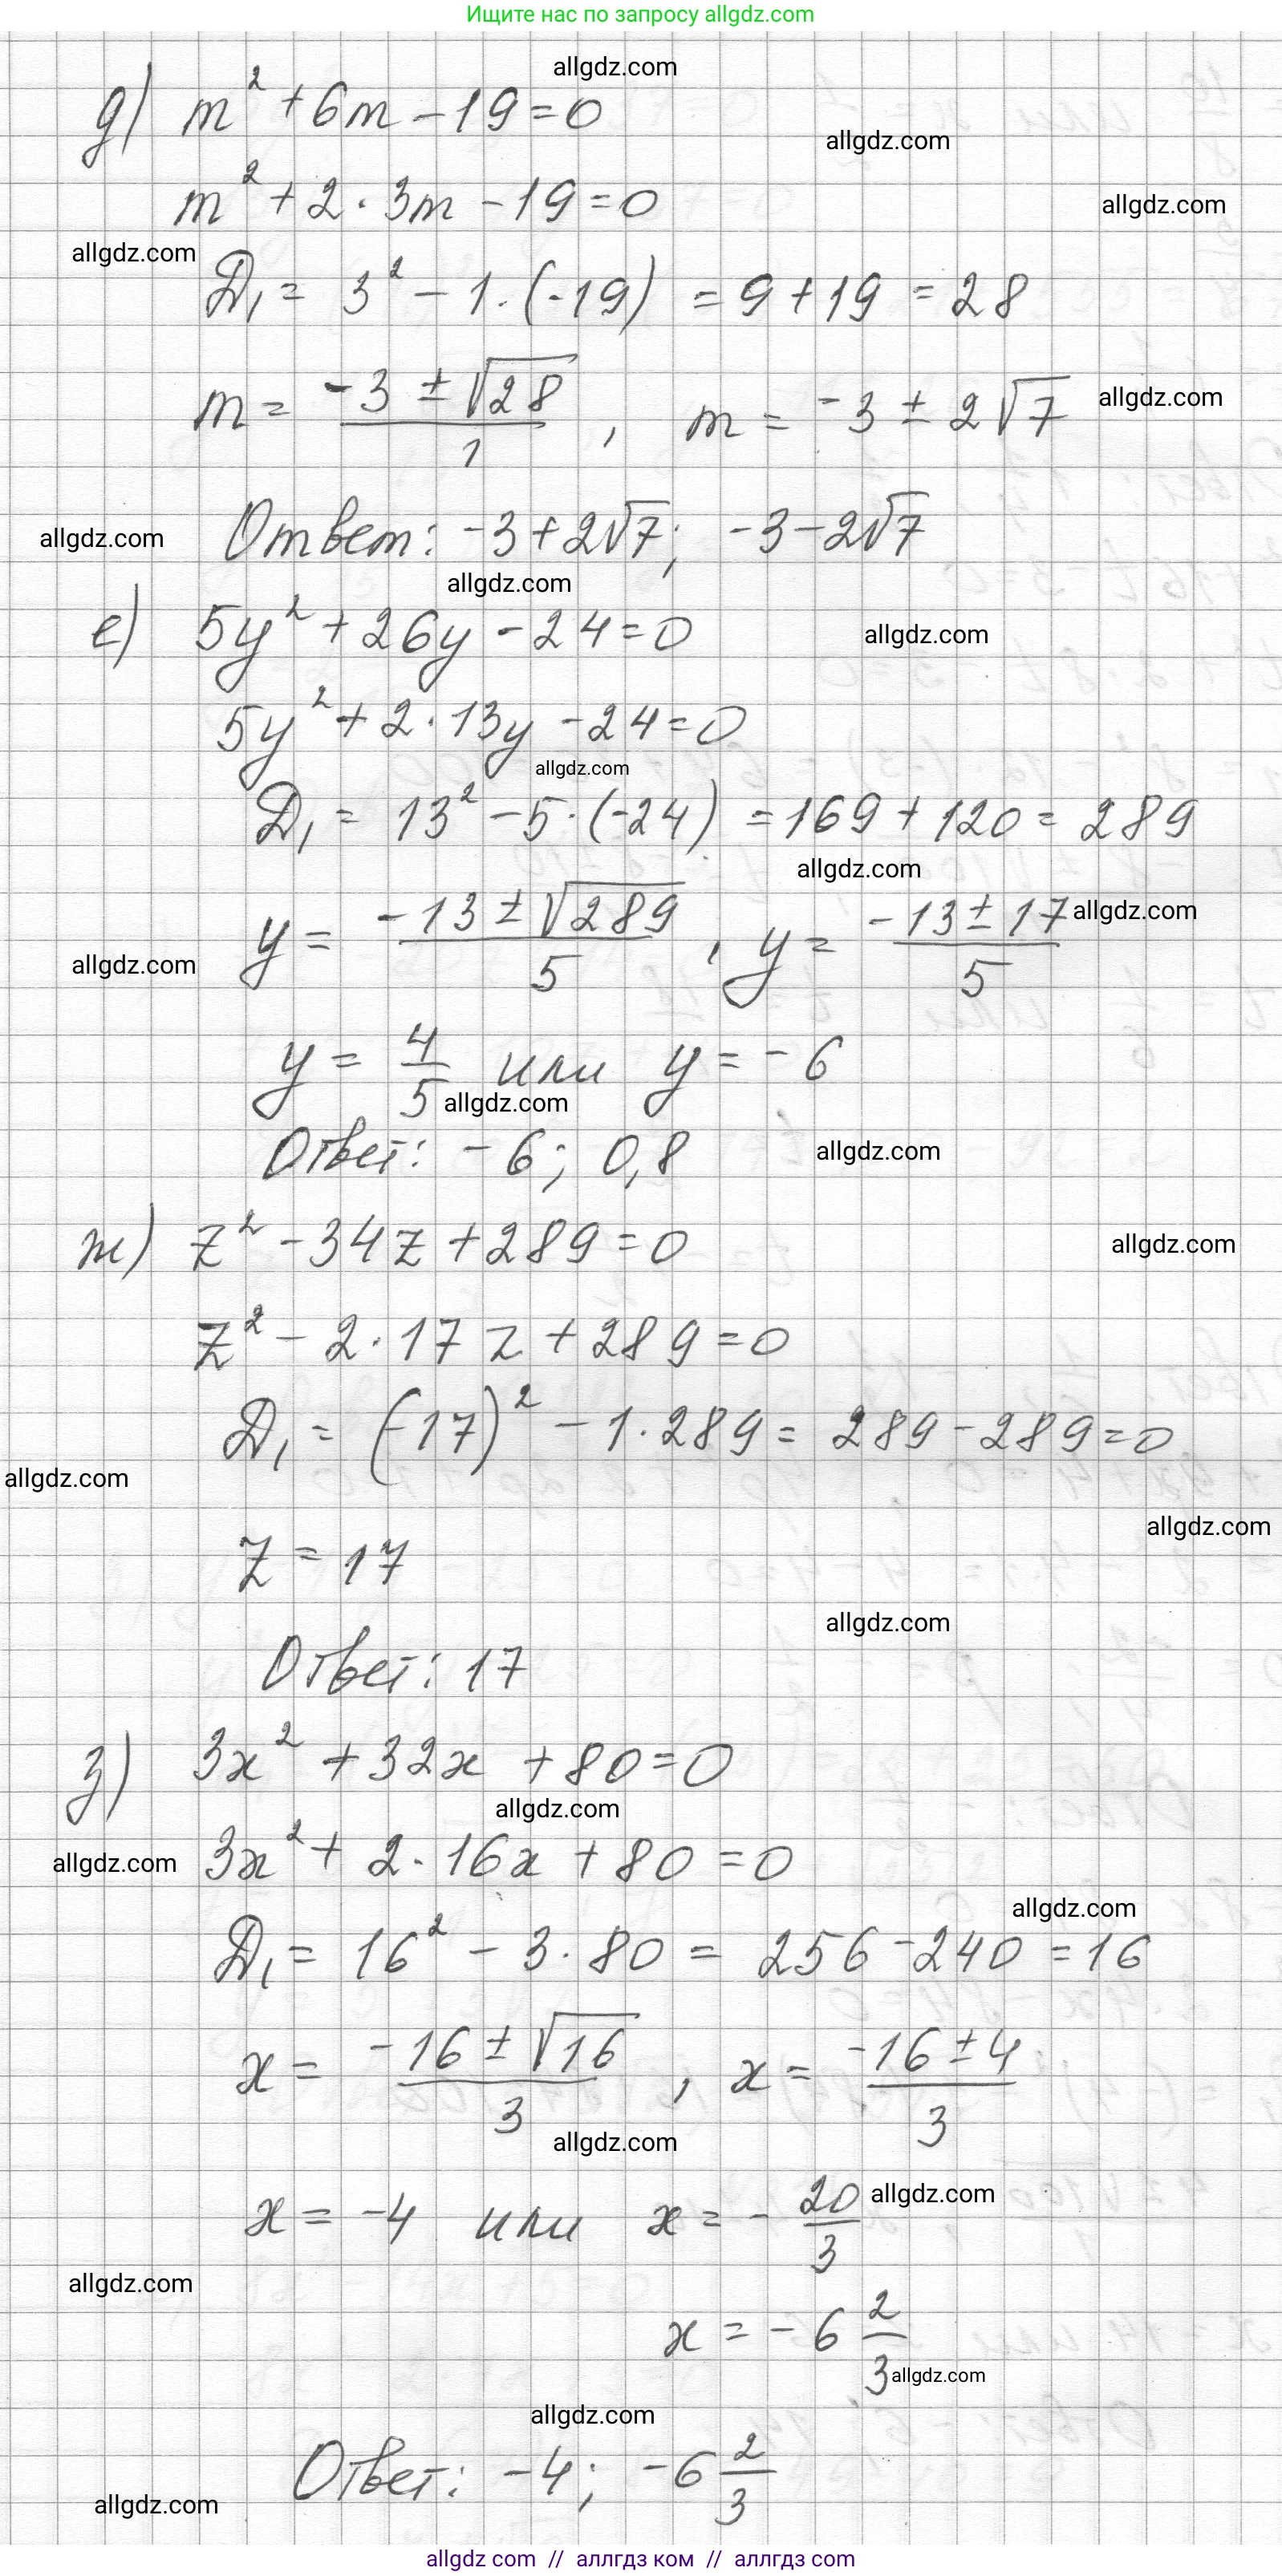 Ищите нас по запросу allgdz.com
allgdz.com
д) m² + 6m - 19 = 0
allgdz.com
m² + 2 · 3m - 19 = 0
allgdz.com
allgdz.com
D₁ = 3² - 1 · (-19) = 9 + 19 = 28
m = (-3 ± √28)/1 , m = -3 ± 2√7
allgdz.com
Ответ: -3 + 2√7; -3 - 2√7
allgdz.com
allgdz.com
е) 5y² + 26y - 24 = 0
allgdz.com
5y² + 2 · 13y - 24 = 0
allgdz.com
D₁ = 13² - 5 · (-24) = 169 + 120 = 289
allgdz.com
y = (-13 ± √289)/5 , y = (-13 ± 17)/5
allgdz.com
allgdz.com
y = 4/5 или y = -6
allgdz.com
Ответ: -6; 0,8
allgdz.com
ж) z² - 34z + 289 = 0
allgdz.com
z² - 2 · 17z + 289 = 0
D₁ = (-17)² - 1 · 289 = 289 - 289 = 0
allgdz.com
allgdz.com
z = 17
allgdz.com
Ответ: 17
з) 3x² + 32x + 80 = 0
allgdz.com
allgdz.com
3x² + 2 · 16x + 80 = 0
allgdz.com
D₁ = 16² - 3 · 80 = 256 - 240 = 16
x = (-16 ± √16)/3 , x = (-16 ± 4)/3
allgdz.com
allgdz.com
x = -4 или x = -20/3
allgdz.com
x = -6 2/3
allgdz.com
allgdz.com
Ответ: -4; -6 2/3
allgdz.com
allgdz com // аллгдз ком // аллгдз com